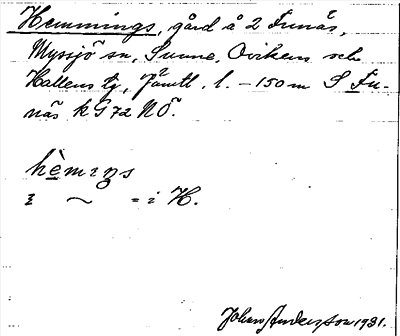 Hemmings, gård å 2 Funäs,
Myssjö sn, Sunne, Ovikens och
Hallens tg, Jämtl. l. – 150 m S Fu-
näs k G 72 NÖ.
hèmıŋs
ı ~ = i H.
Johan Anderson 1931.